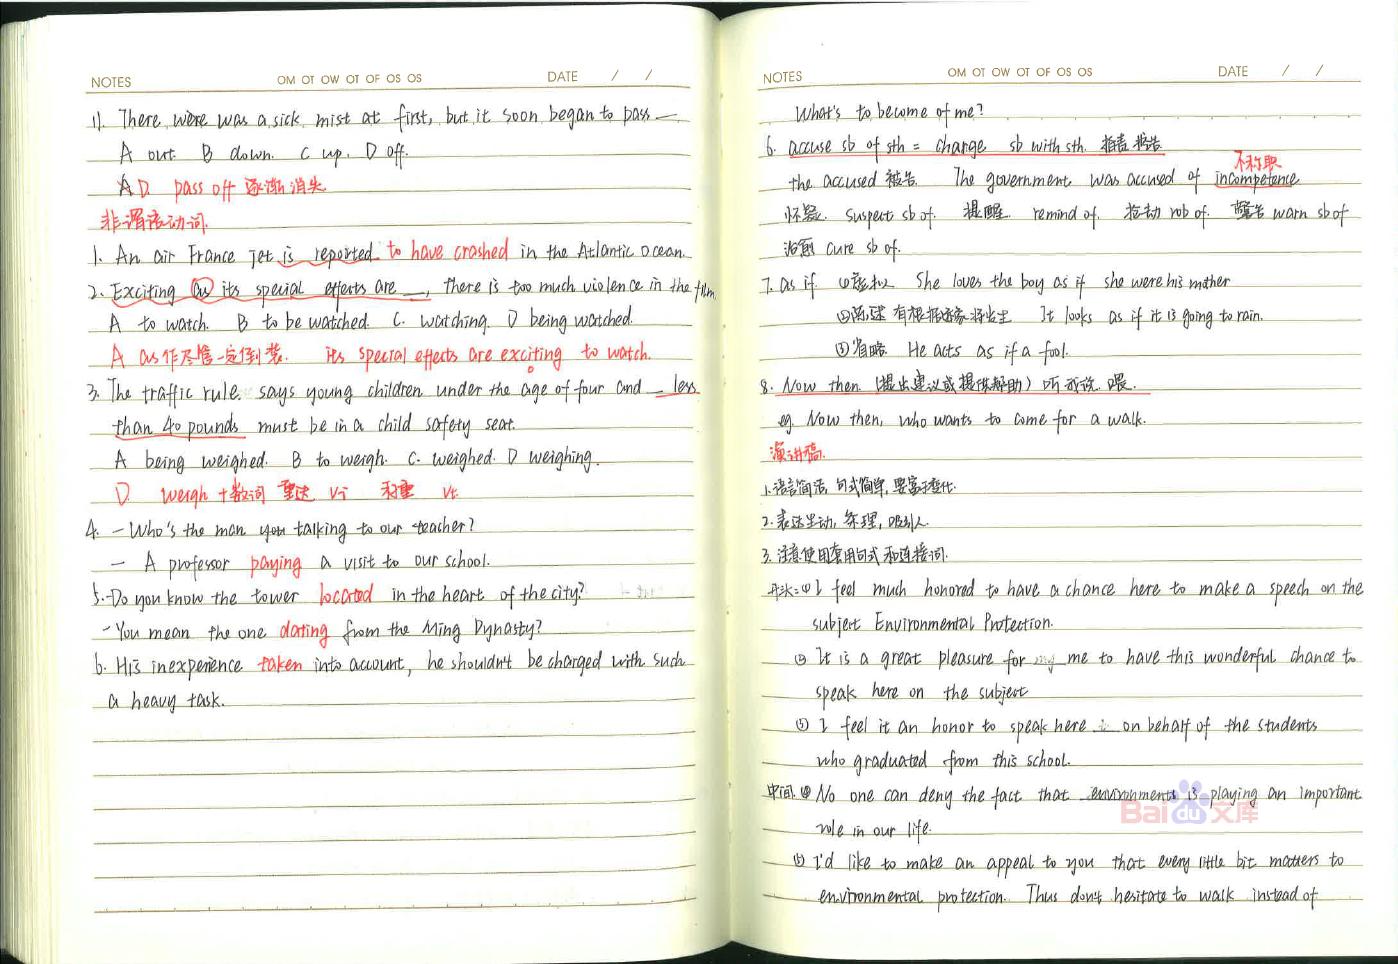 NOTES OM OT OW OT OF OS OS DATE / /
11. There were was a sick mist at first, but it soon began to pass __
A out. B down. C up. D off.
A D. pass off 逐渐消失
非谓语动词.
1. An air France jet is reported to have crashed in the Atlantic ocean.
2. Exciting as its special effects are __, there is too much violence in the film.
A to watch. B to be watched. C. watching. D being watched.
A as作尽管一定倒装. its special effects are exciting to watch.
3. The traffic rule says young children under the age of four and _ less
than 40 pounds must be in a child safety seat.
A being weighed. B to weigh. C. weighed. D weighing.
D. weigh + 数词 重达 vi 称重 vt.
4. - Who's the man you talking to our teacher?
- A professor paying a visit to our school.
5. - Do you know the tower located in the heart of the city?
- You mean the one dating from the Ming Dynasty?
6. His inexperience taken into account, he shouldn't be charged with such
a heavy task.
NOTES OM OT OW OT OF OS OS DATE / /
What's to become of me?
6. accuse sb of sth = charge sb with sth. 指责 控告
不称职
the accused 被告. The government was accused of incompetence
怀疑. suspect sb of. 提醒. remind of. 抢劫 rob of. 警告 warn sb of
治愈 cure sb of.
7. as if ①虚拟 She loves the boy as if she were his mother
② 有根据 It looks as if it is going to rain.
③省略. He acts as if a fool.
8. Now then (提出建议或提供帮助) 听我说. 喂.
eg. Now then, who wants to come for a walk.
演讲稿.
1. 语言简洁, 句式简单, 要富于变化.
2. 表达生动, 条理, 吸引人.
3. 注意使用套用句式和连接词.
开头: ① I feel much honored to have a chance here to make a speech on the
subject Environmental Protection.
② It is a great pleasure for my me to have this wonderful chance to
speak here on the subject
③ I feel it an honor to speak here on behalf of the students
who graduated from this school.
中间. ④ No one can deny the fact that environments is playing an important
role in our life.
⑤ I'd like to make an appeal to you that every little bit matters to
environmental protection. Thus don't hesitate to walk instead of
Baidu文库